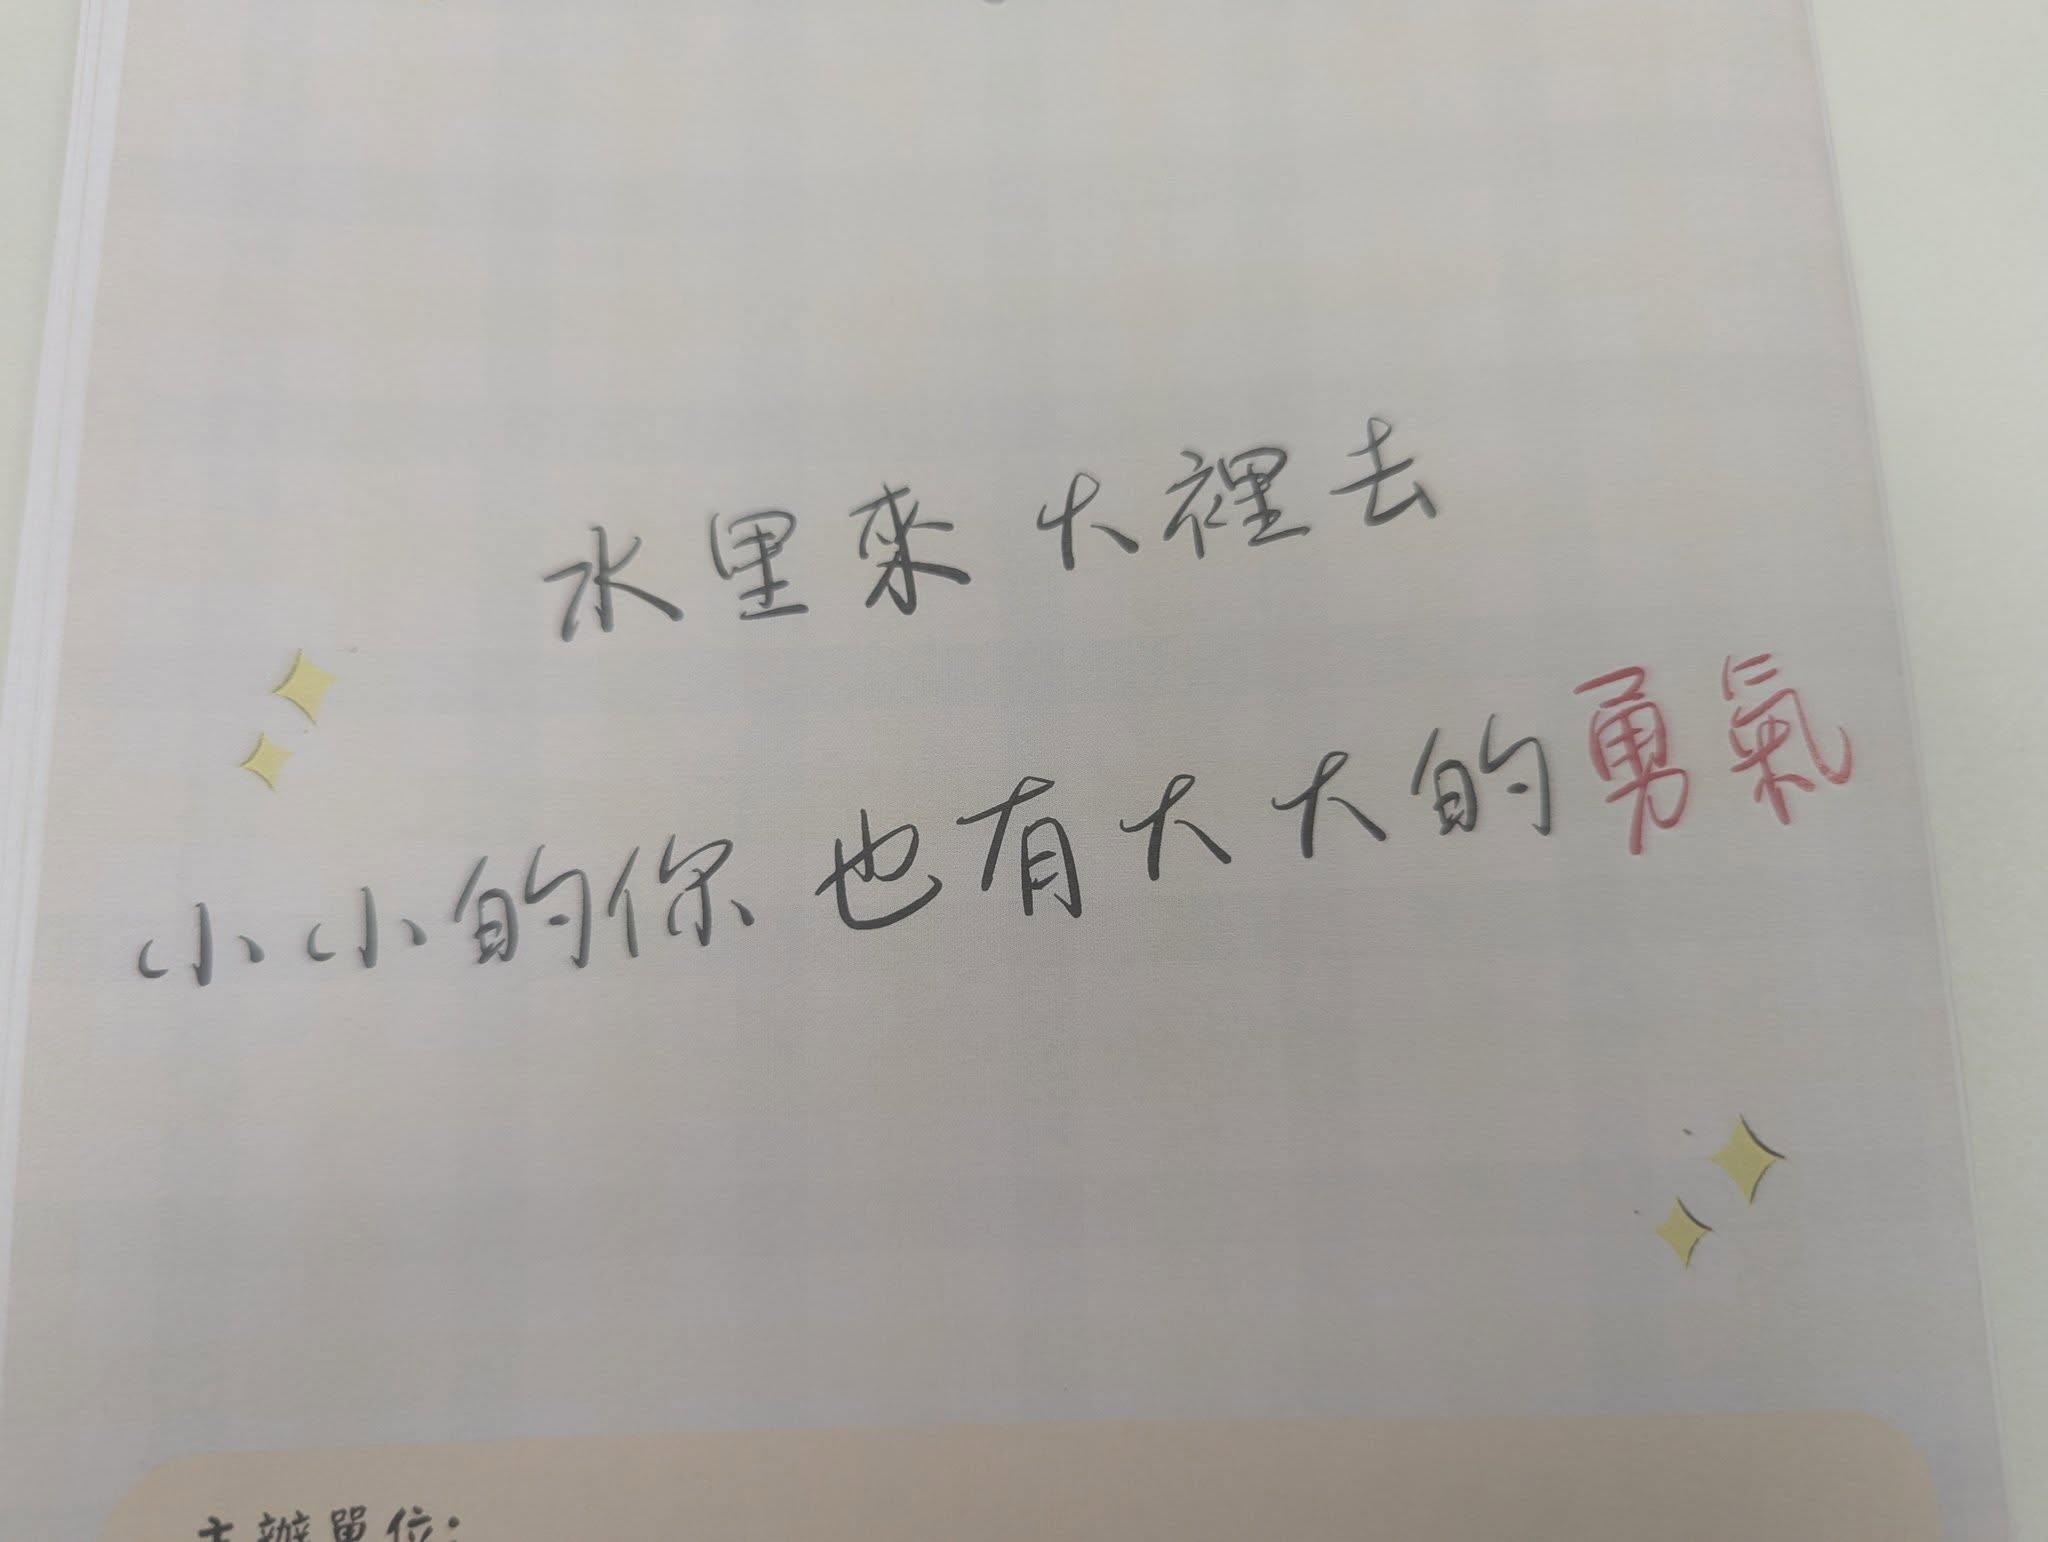 水里來 大裡去
小小的你 也有大大的勇氣
主辦單位: